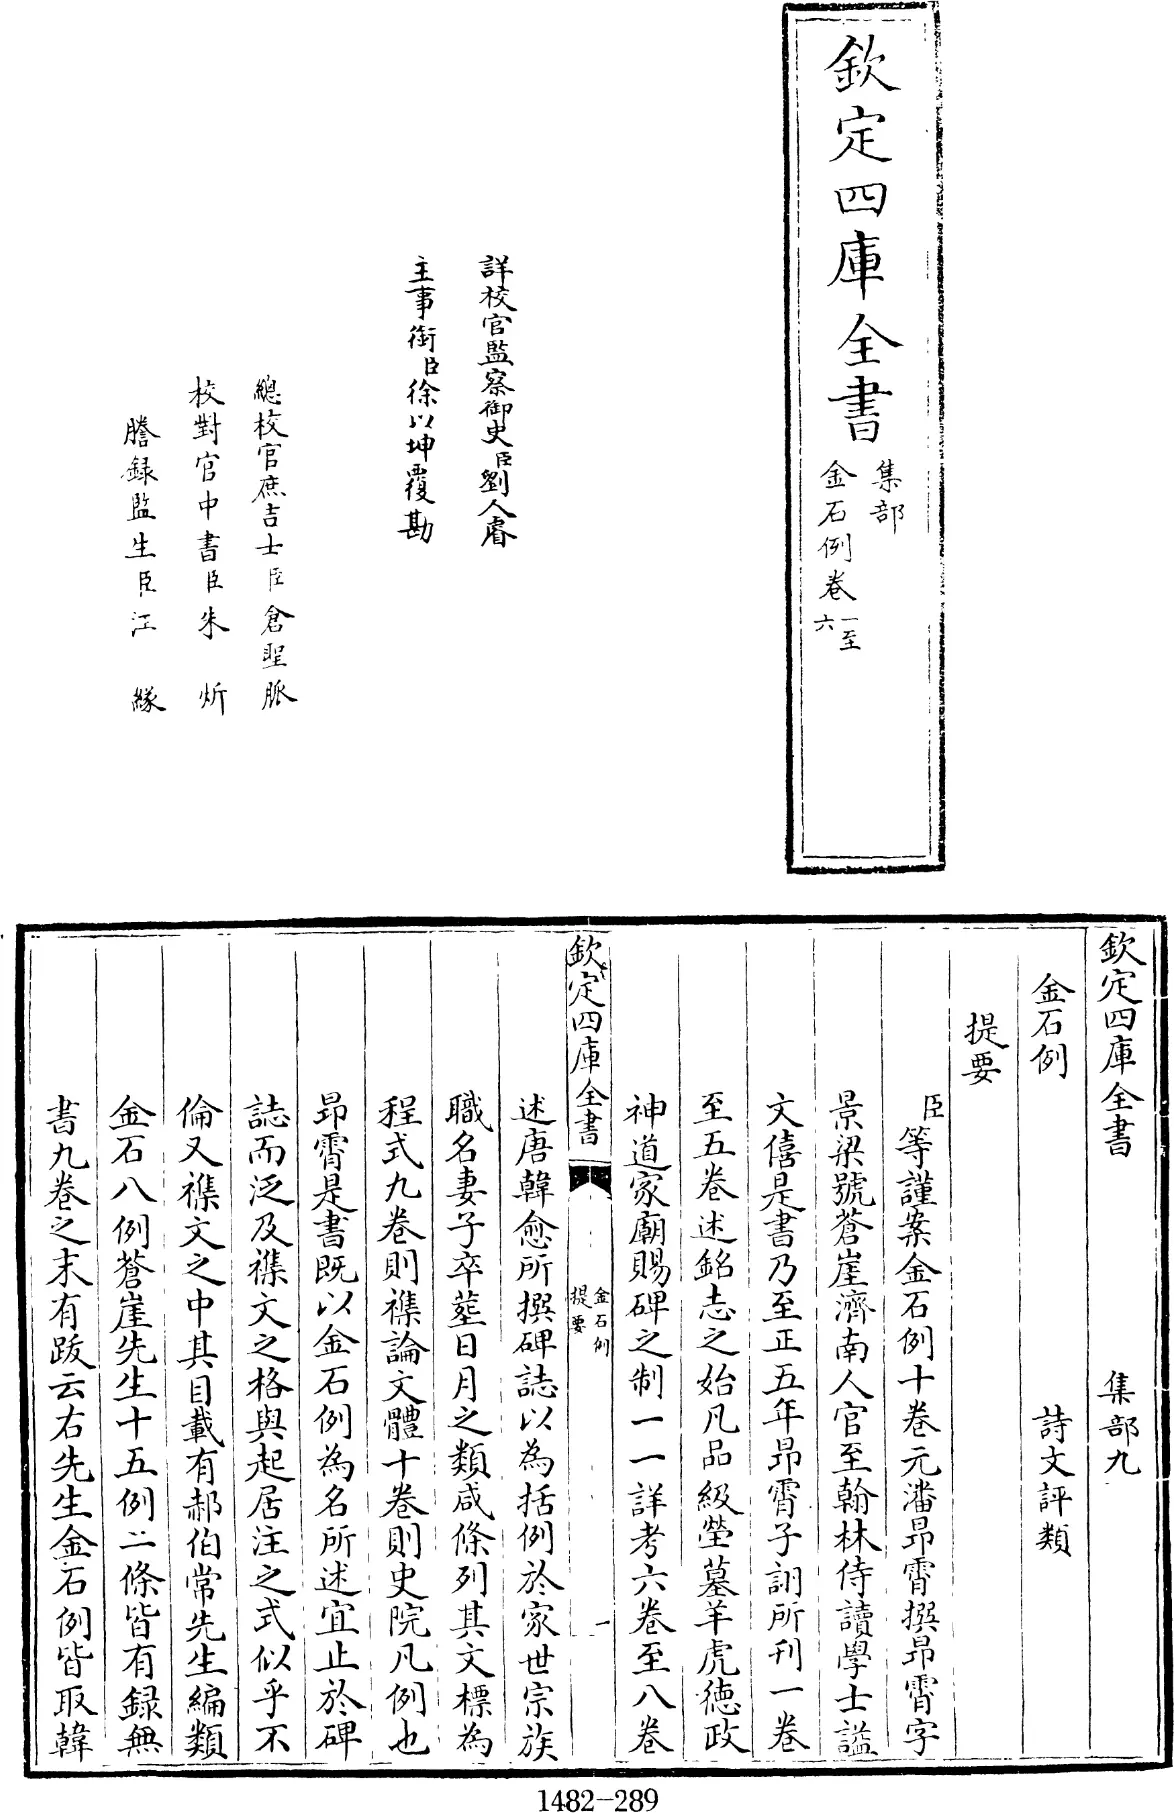 欽定四庫全書
集部
金石例卷一至六
詳校官監察御史臣劉人睿
主事銜臣徐以坤覆勘
總校官庶吉士臣倉聖脈
校對官中書臣朱炘
謄録監生臣江緣
欽定四庫全書 集部九
金石例 詩文評類
提要
臣等謹案金石例十卷元潘昂霄撰昻霄字
景梁號蒼崖濟南人官至翰林侍讀學士謚
文僖是書乃至正五年昻霄子詡所刊一卷
至五卷述銘志之始凡品級塋墓羊虎德政
神道家廟賜碑之制一一詳考六卷至八卷
述唐韓愈所撰碑誌以為括例於家世宗族
職名妻子卒塟日月之類咸條列其文標為
程式九卷則襍論文體十卷則史院凡例也
昻霄是書既以金石例為名所述宜止於碑
誌而泛及襍文之格與起居注之式似乎不
倫又襍文之中其目載有郝伯常先生編類
金石八例蒼崖先生十五例二條皆有録無
書九卷之末有跋云右先生金石例皆取韓
欽定四庫全書
金石例
提要
一
1482-289